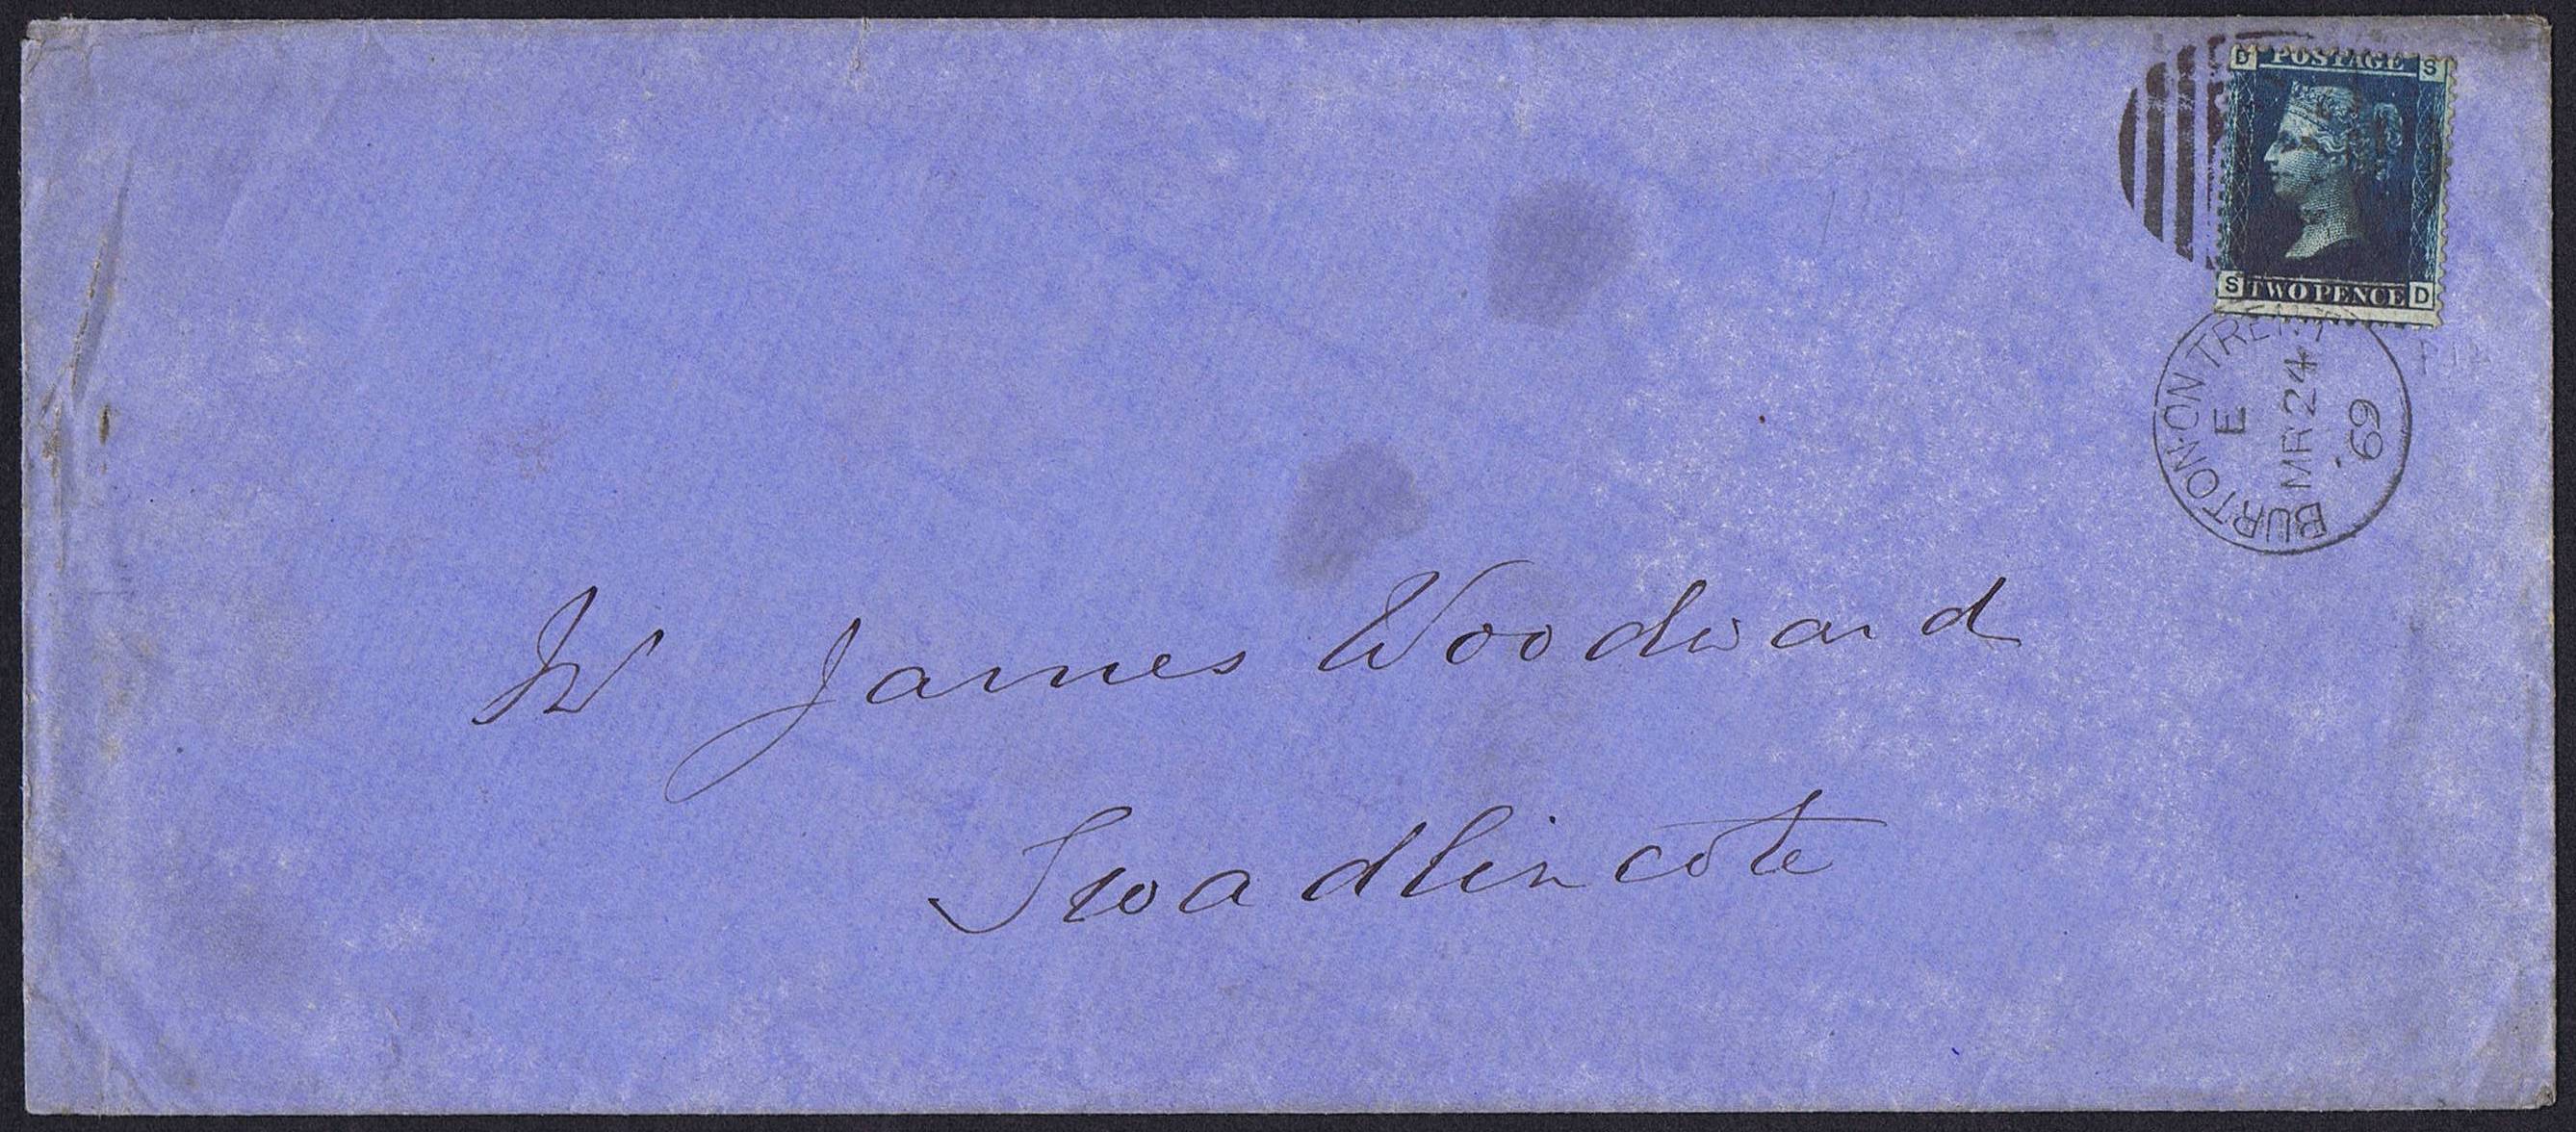 D POSTAGE S
S TWO PENCE D
BURTON-ON-TRENT
E
MR 24
69
Mr James Woodward
Swadlincote